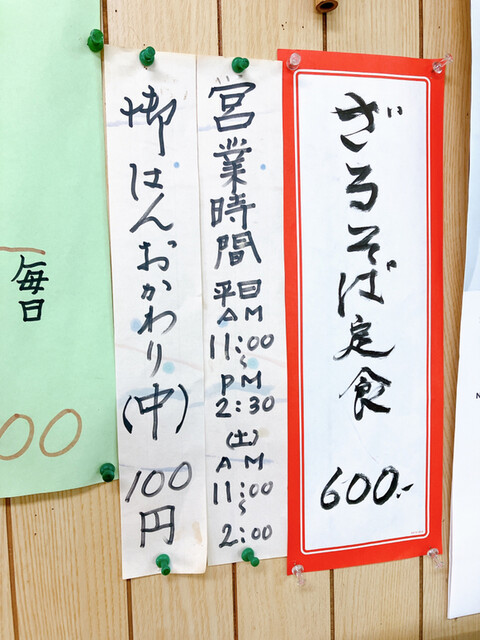 ざるそば定食
600.-
営業時間
平日
AM
11:00
~
PM
2:30
(土)
AM
11:00
~
2:00
御はんおかわり(中)
100
円
毎日
00